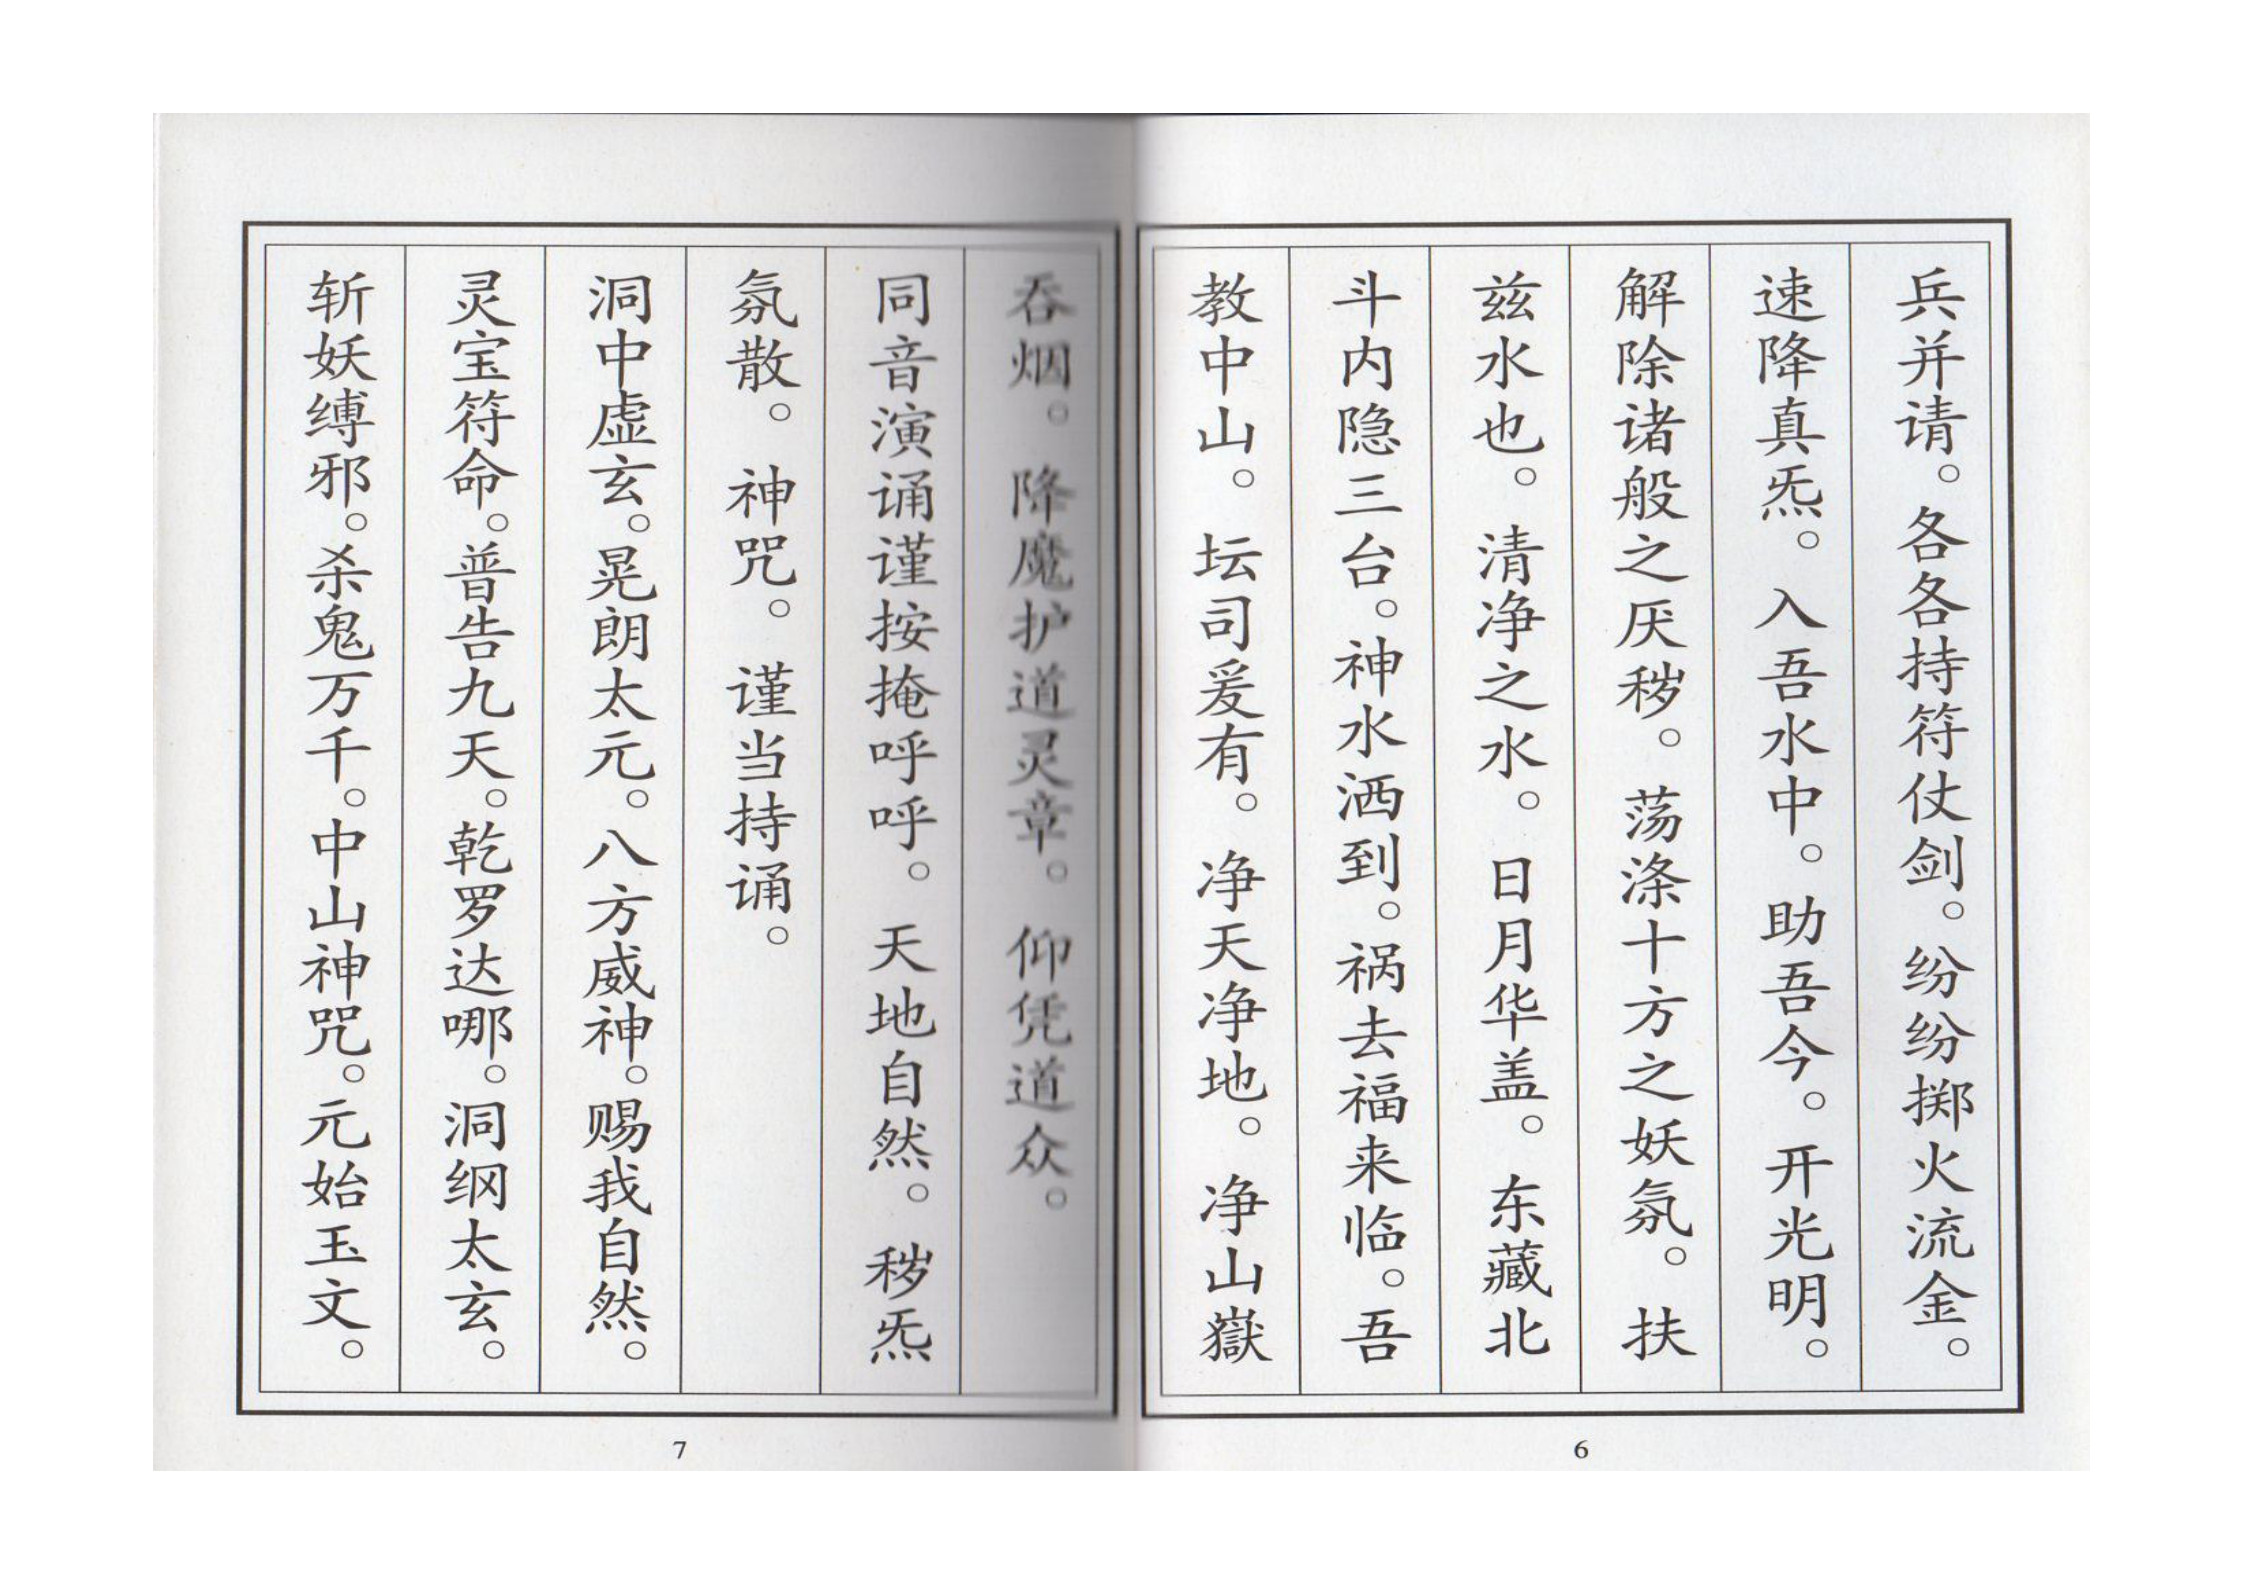 兵并请。各各持符仗剑。纷纷掷火流金。
速降真炁。入吾水中。助吾今。开光明。
解除诸般之厌秽。荡涤十方之妖氛。扶
兹水也。清净之水。日月华盖。东藏北
斗内隐三台。神水洒到。祸去福来临。吾
教中山。坛司爰有。净天净地。净山嶽
6
吞烟。降魔护道灵章。仰凭道众。
同音演诵谨按掩呼呼。天地自然。秽炁
氛散。神咒。谨当持诵。
洞中虚玄。晃朗太元。八方威神。赐我自然。
灵宝符命。普告九天。乾罗达哪。洞纲太玄。
斩妖缚邪。杀鬼万千。中山神咒。元始玉文。
7